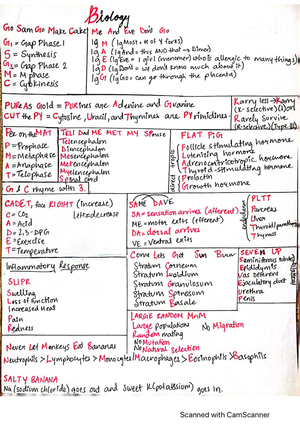 Biology
Go Sam Go Make Cake!
G₁ = Gap Phase 1
S = Synthesis
G₂ = Gap Phase 2
M = M phase
C = Cytokinesis
Me And Eve Don't Go
Ig M (Ig Most = # of Y forks)
Ig A (Ig And = this AND that = Dimer)
Ig D (Ig Don't = we don't know much about it)
Ig G (Ig Go = can go through the placenta)
PUReAs Gold = PURines are Adenine and Guanine
CUT the PY = Cytosine, Uracil, and Thymines are PYrimidines
Rarely Survive
Pee on the MAT
P = Prophase
M = Metaphase
A = Anaphase
T = Telophase
TELL Did ME MET MY Spouse
Telencephalon
Diencephalon
Mesencephalon
Metencephalon
Myelencephalon
Spinal cord
FLAT PIG
Follicle stimulating hormone
Luteinising hormone
Adrenocorticotropic hormone
Thyroid-stimulating hormone
Prolactin
Growth hormone
G1 C rhyme with 3.
CADET, face RIGHT (Increase)
C = CO₂
left = decrease
A = Acid
D = 2,3-DPG
E = Exercise
T = Temperature
SAME DAVE
SA = sensation arrives (afferent)
ME = motor exits (efferent)
DA = dorsal arrives
VE = Ventral exits
PLTT
Pancreas
Thymus
Inflammatory Response
SLIPR
Swelling
Loss of function
Increased Heat
Pain
Redness
Come Lets Get Sun Burn
Stratum Corneum
Stratum Lucidum
Stratum Granulosum
Stratum Spinosum
Stratum Basale
SEVEN UP
Seminiferous tubules
Epididymis
Vas Deferens
Ejaculatory duct
Urethra
Penis
LARGE RANDOM MNM
Large population
No Migration
Random mating
No Mutation
No Natural Selection
Never Let Monkeys Eat Bananas
Neutrophils > Lymphocytes > Monocytes/Macrophages > Eosinophils > Basophils
SALTY BANANA
Na (sodium chloride) goes out and sweet K (potassium) goes in.
Scanned with CamScanner